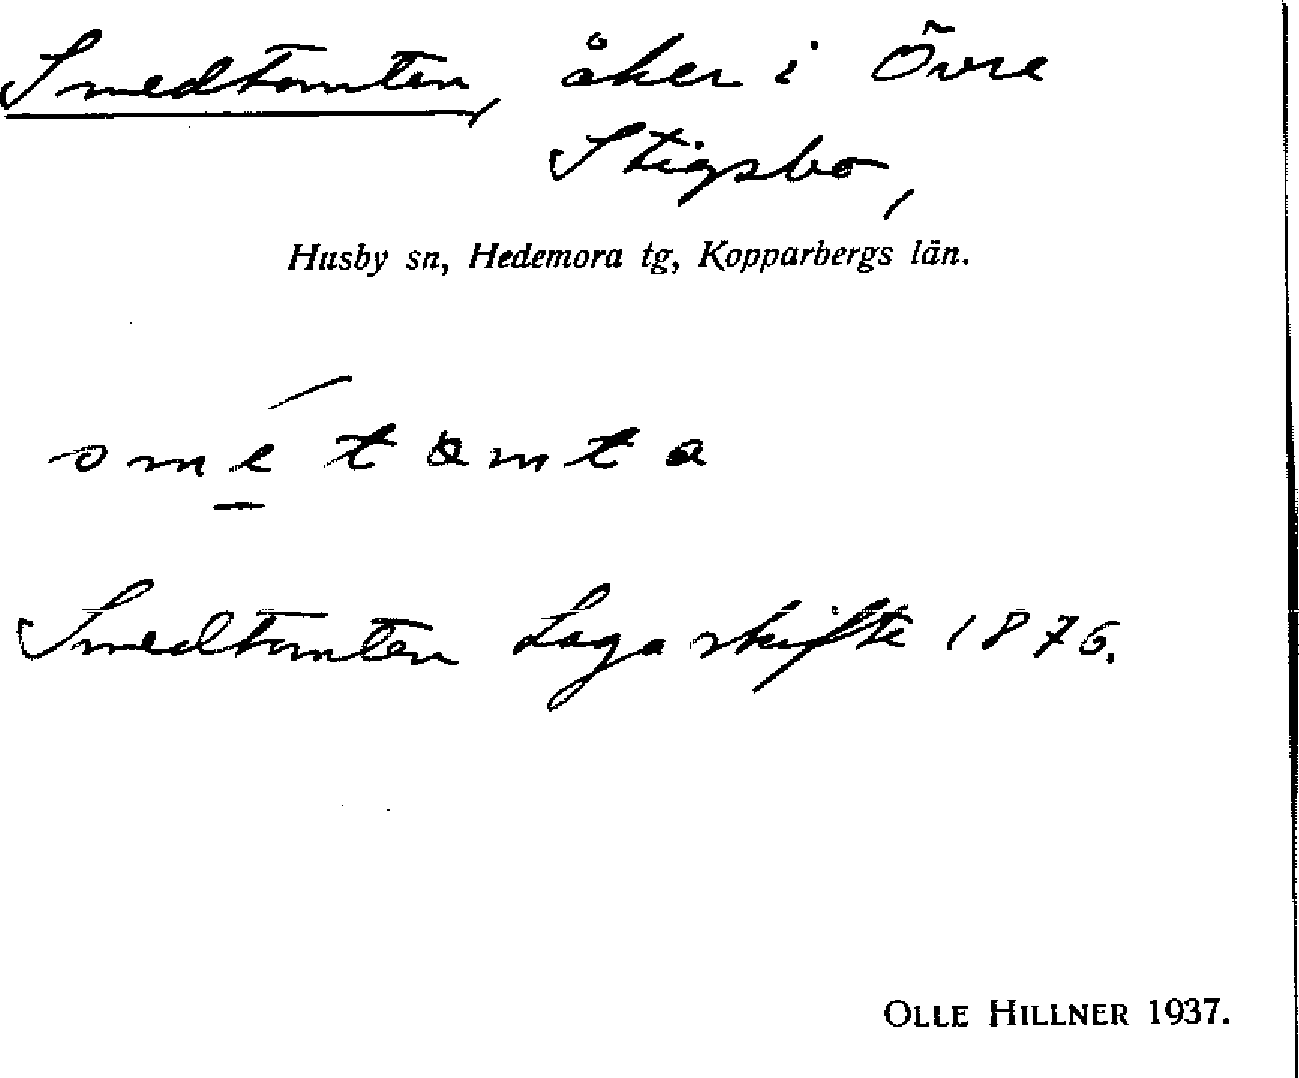 Smedtomten, åker i Övre
Stigsbo,
Husby sn, Hedemora tg, Kopparbergs län.
Smedtomten Laga skifte 1876.
OLLE HILLNER 1937.